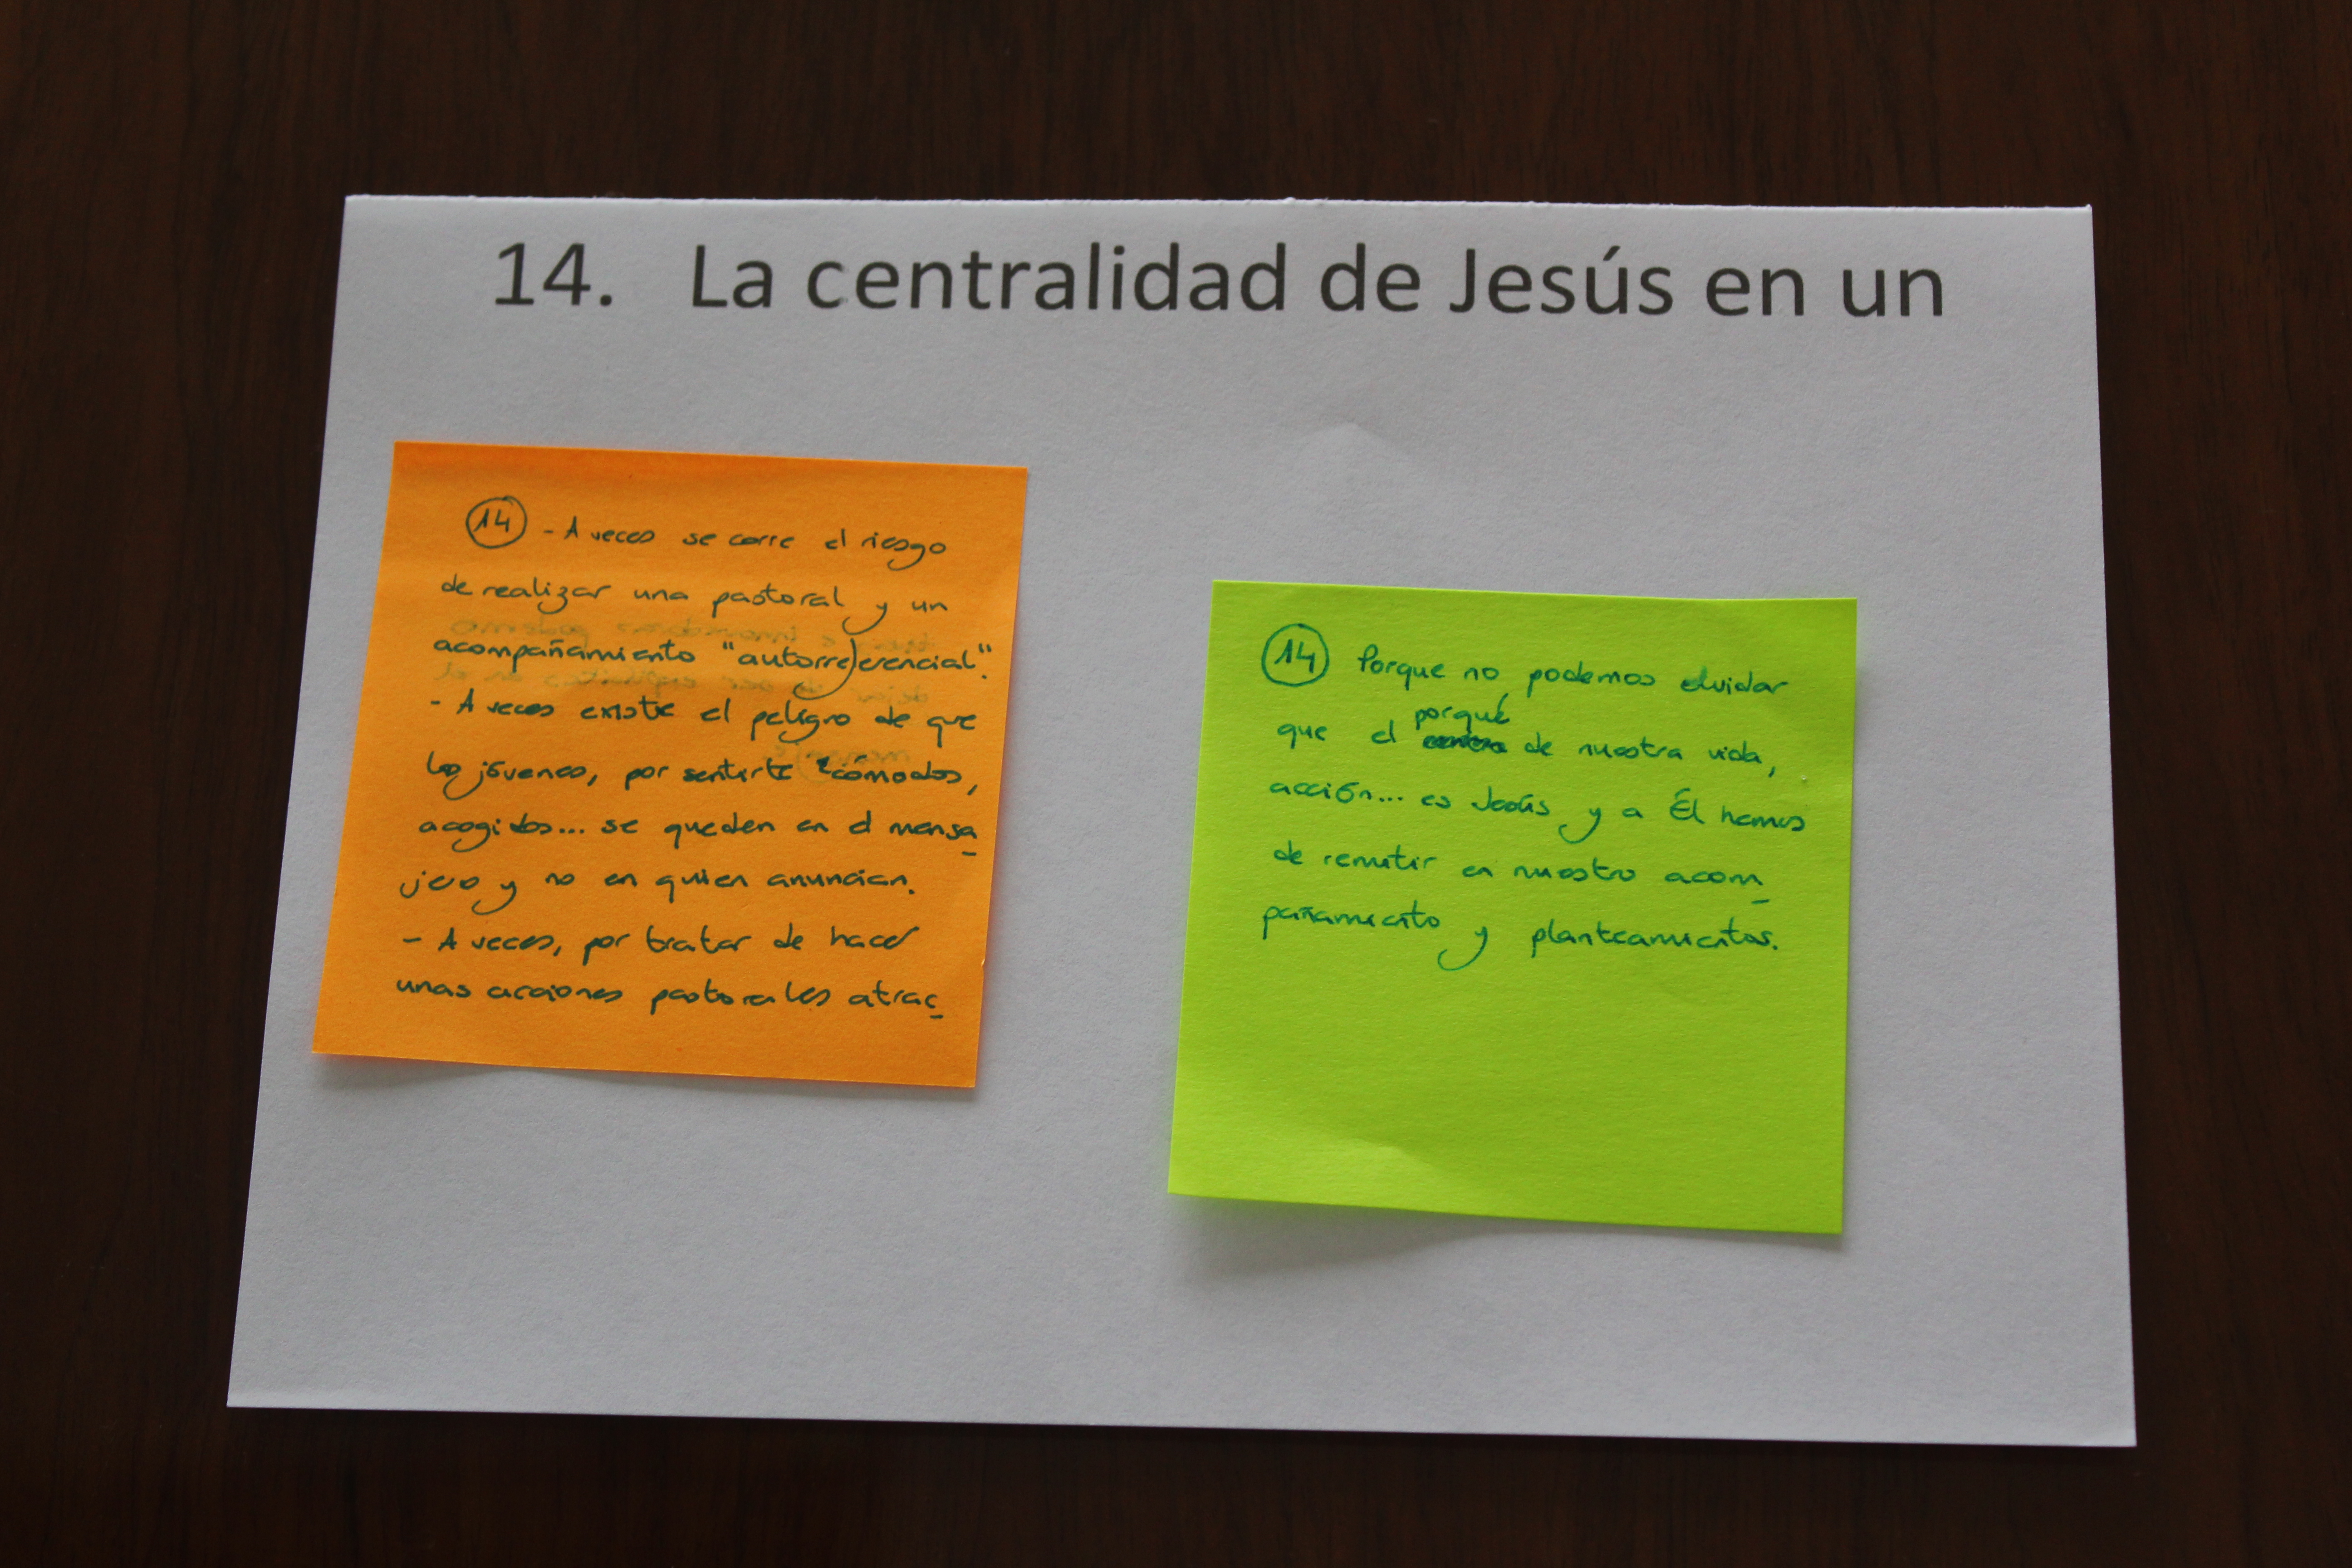 14. La centralidad de Jesús en un
14 - A veces se corre el riesgo
de realizar una pastoral y un
acompañamiento "autorreferencial".
- A veces existe el peligro de que
los jóvenes, por sentirte cómodos,
acogidos... se queden en el mensa
jero y no en quien anuncian.
- A veces, por tratar de hacer
unas acciones pastorales atrac
14 Porque no podemos olvidar
porqué
que el de nuestra vida,
acción... es Jesús y a Él hemos
de remitir en nuestro acom
pañamiento y planteamientos.